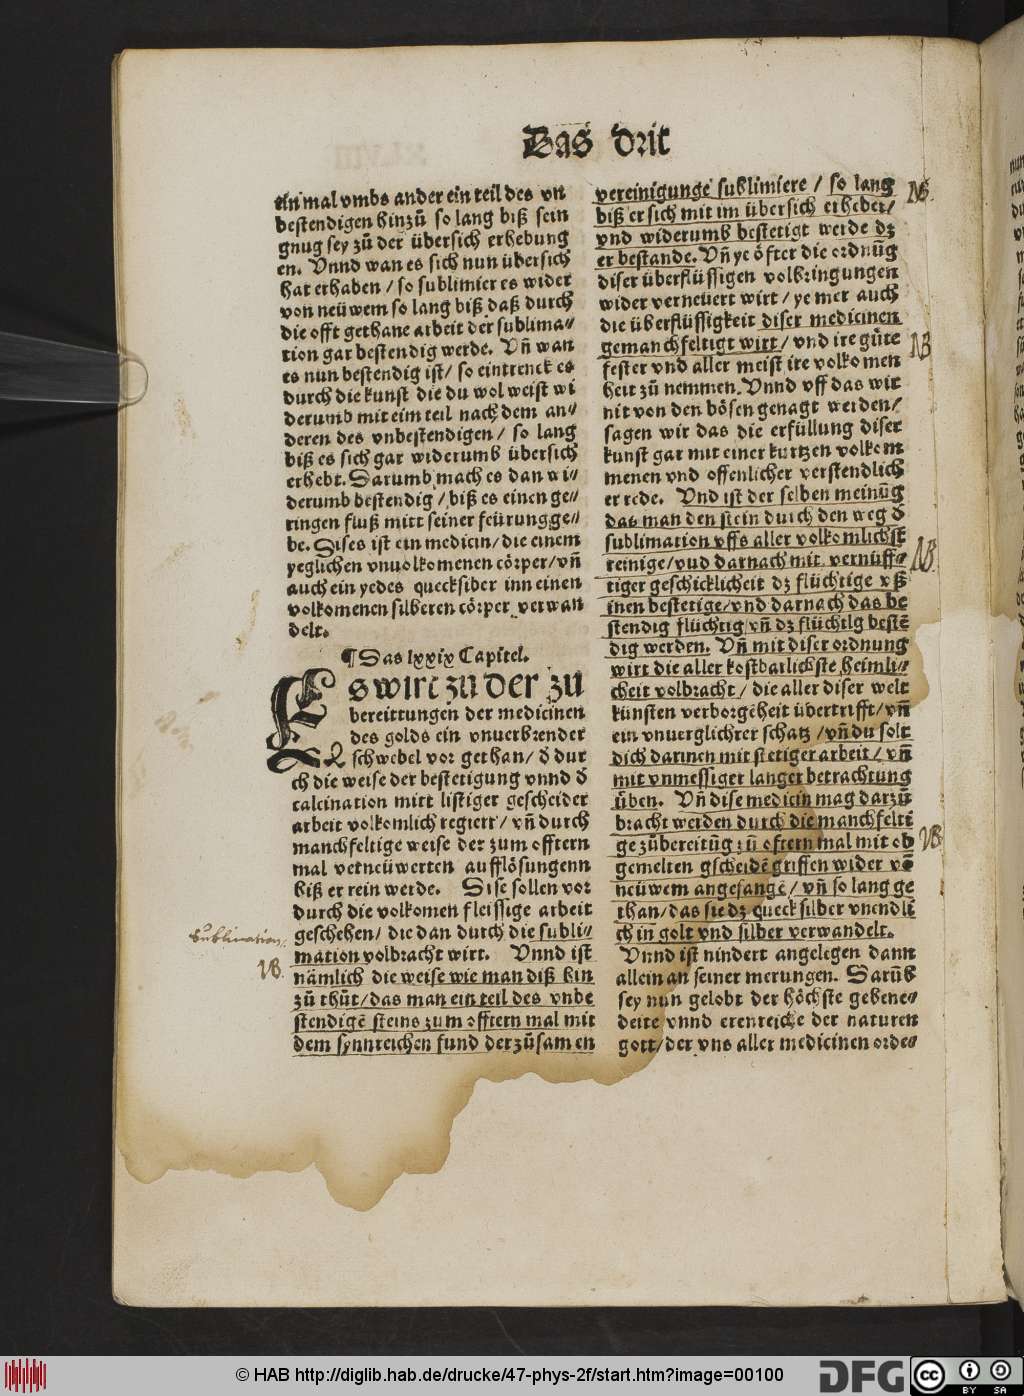 Das drit
ein mal vmbs ander ein teil des vn
bestendigen hinzů so lang biß sein
gnug sey zů der übersich erhebung
en. Vnnd wan es sich nun übersich
hat erhaben / so sublimier es wider
von neüwem so lang biß daß durch
die offt gethane arbeit der sublima⸗
tion gar bestendig werde. Vn̄ wan
es nun bestendig ist / so eintrenck es
durch die kunst die du wol weist wi
derumb mit eim teil nach dem an⸗
deren des vnbestendigen / so lang
biß es sich gar widerumb übersich
erhebt. Darumb mach es dan wi⸗
derumb bestendig / biß es einen ge⸗
ringen fluß mitt seiner feürung ge⸗
be. Dises ist ein medicin / die einem
yeglichen vnuolkomenen cörper / vn̄
auch ein yedes quecksiber inn einen
volkomenen silberen cörper verwan
delt.
¶ Das lxxix Capitel.
Es wirt zu der zu
bereittungen der medicinen
des golds ein vnuerbrender
schwebel vor gethan / d̄ dur
ch die weise der bestetigung vnnd d̄
calcination mitt listiger gescheider
arbeit volkomlich regiert / vn̄ durch
manchfeltige weise der zum offtern
mal verneüwerten aufflösungenn
biß er rein werde. Dise sollen vor
durch die volkomen fleissige arbeit
geschehen / die dan durch die subli⸗
mation volbracht wirt. Vnnd ist
nämlich die weise wie man diß kin
zů thůt / das man ein teil des vnbe
stendigē steins zum offtern mal mit
dem synnreichen fund der zůsamen
Sublimation.
NB.
vereinigunge sublimiere / so lang
biß er sich mit im übersich erhebet /
vnd widerumb bestetigt werde dz
er bestande. Vn̄ ye öfter die ordnūg
diser überflüssigen volbringungen
wider verneuert wirt / ye mer auch
die überflüssigkeit diser medicinen
gemanchfeltigt wirt / vnd ire güte
fester vnd aller meist ire volkomen
heit zů nemmen. Vnnd vff das wir
nit von den bösen genagt werden /
sagen wir das die erfüllung diser
kunst gar mit einer kurtzen volkom
menen vnd offenlicher verstendlich
er rede. Vnd ist der selben meinūg
das man den stein durch den weg d̄
sublimation vffs aller volkomlichst
reinige / vnd darnach mit vernüff⸗
tiger geschicklicheit dz flüchtige vß
inen bestetige / vnd darnach das be
stendig flüchtig vn̄ dz flüchtig bestē
dig werden. Vn̄ mit diser ordnung
wirt die aller kostbarlichste heimli⸗
cheit volbracht / die aller diser welt
künsten verborgēheit übertrifft / vn̄
ein vnuerglichrer schatz / vn̄ du solt
dich darinen mit stetiger arbeit / vn̄
mit vnmessiger langer betrachtung
üben. Vn̄ dise medicin mag darzů
bracht werden durch die manchfelti
ge zůbereitūg zů oftern mal mit ob
gemelten gscheidē griffen wider vō
neüwem angefangē / vn̄ so lang ge
than / das sie dz queck silber vnendli
ch in golt vnd silber verwandelt.
Vnnd ist nindert angelegen dann
allein an seiner merungen. Darūb
sey nun gelobt der höchste gebene⸗
deite vnnd erenreiche der naturen
gott / der vns aller medicinen orde⸗
NB.
NB
NB.
NB
© HAB http://diglib.hab.de/drucke/47-phys-2f/start.htm?image=00100
DFG
cc
BY SA